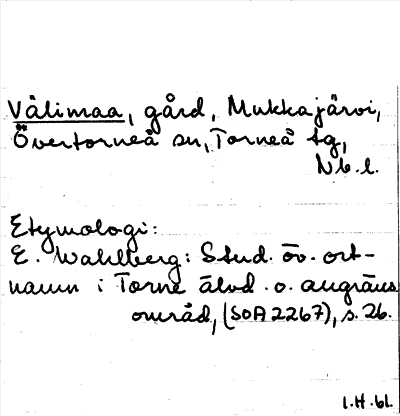 Välimaa, gård, Mukkajärvi,
Övertorneå sn, Torneå tg,
Nb. l.
Etymologi:
E. Wahlberg: Stud. öv. ort-
namn i Torne älvd. o. angräns
område, (SOA 2267), s. 26.
I.H. 61.